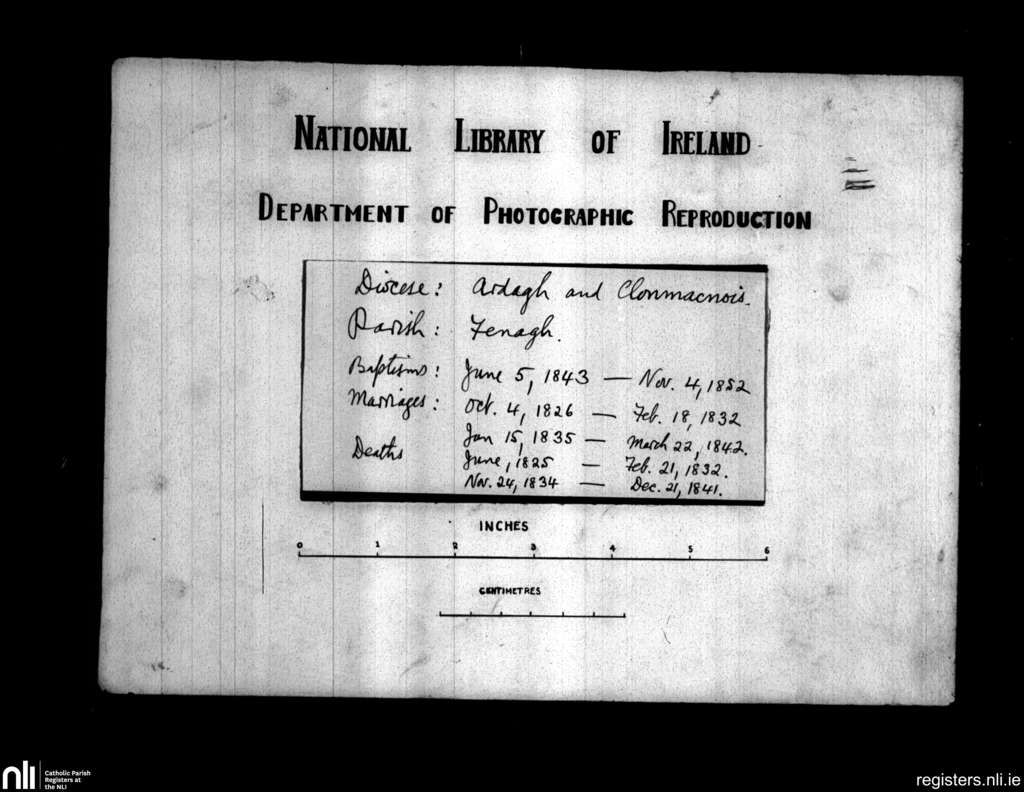 NATIONAL LIBRARY OF IRELAND
DEPARTMENT OF PHOTOGRAPHIC REPRODUCTION
Diocese: Ardagh and Clonmacnois.
Parish: Fenagh.
Baptisms: June 5, 1843 — Nov. 4, 1852
Marriages: Oct. 4, 1826 — Feb. 18, 1832
Jan 15, 1835 — March 22, 1842.
Deaths June, 1825 — Feb. 21, 1832.
Nov. 24, 1834 — Dec. 21, 1841.
INCHES
0 1 2 3 4 5 6
CENTIMETRES
nli Catholic Parish
Registers at
the NLI
registers.nli.ie